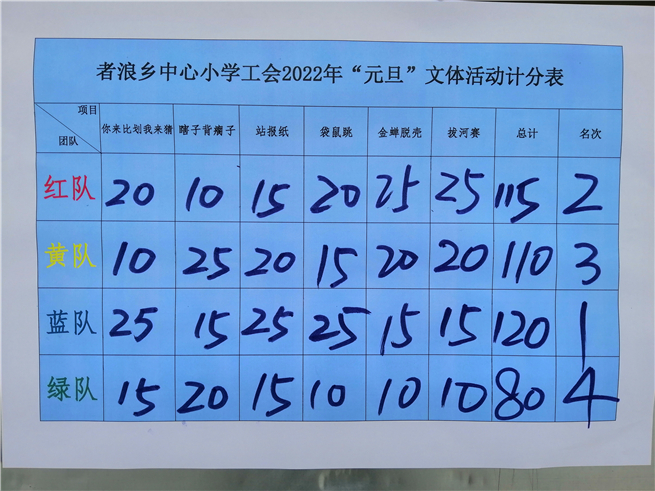 者浪乡中心小学工会2022年“元旦”文体活动计分表
项目 团队 你来比划我来猜 瞎子背瘸子 站报纸 袋鼠跳 金蝉脱壳 拔河赛 总计 名次
红队 20 10 15 20 25 25 115 2
黄队 10 25 20 15 20 20 110 3
蓝队 25 15 25 25 15 15 120 1
绿队 15 20 15 10 10 10 80 4